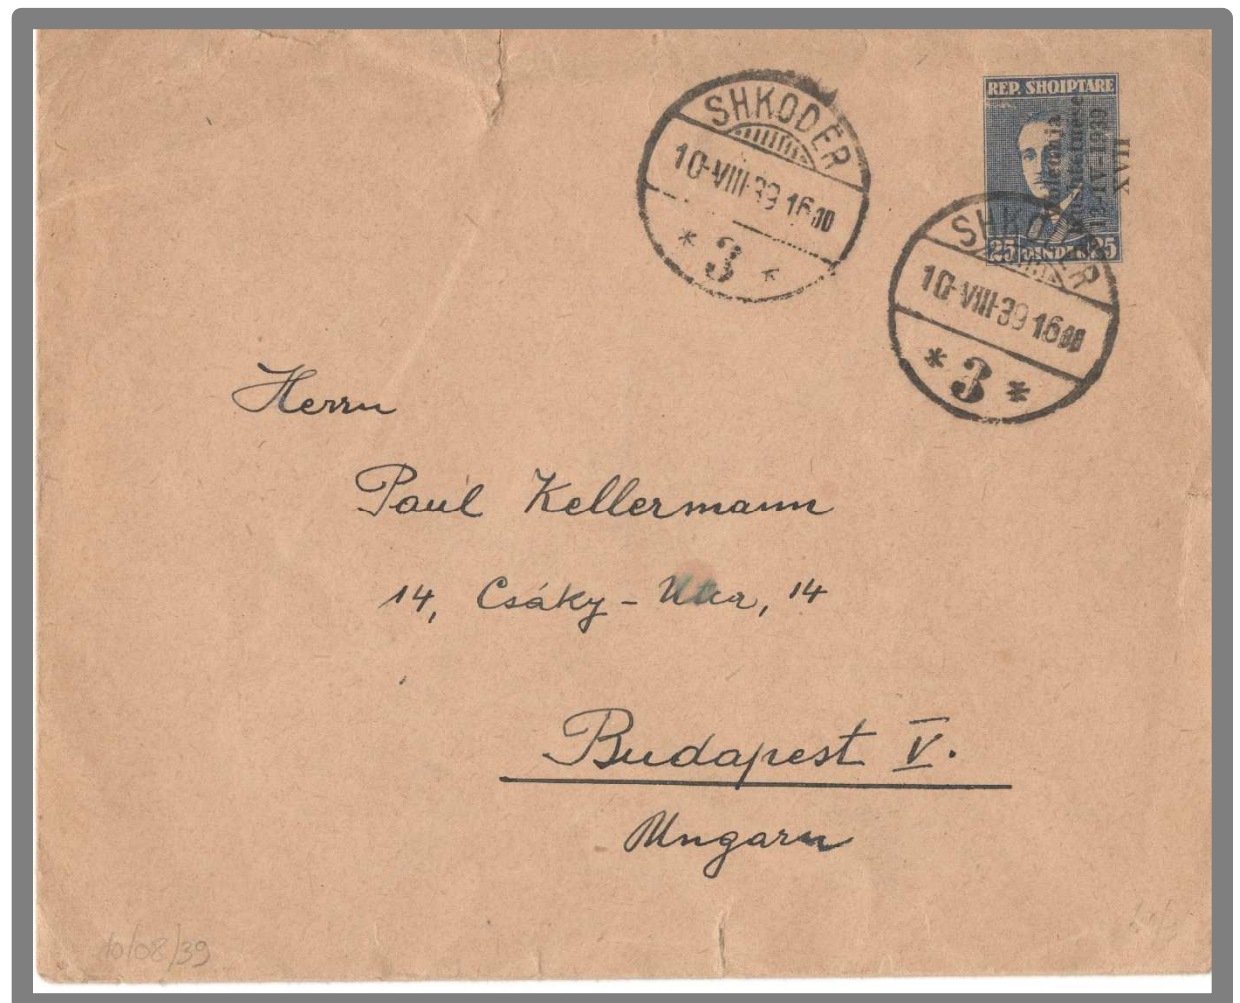 SHKODËR
10-VIII-39 16 30
* 3 *
REP. SHQIPTARE
Mbledhja
Kushtetuese
12-IV-1939
XVII
25 QINDAR 25
SHKODËR
10-VIII-39 16 30
* 3 *
Herrn
Paul Kellermann
14, Csáky-Utca, 14
Budapest V.
Ungarn
10/08/39